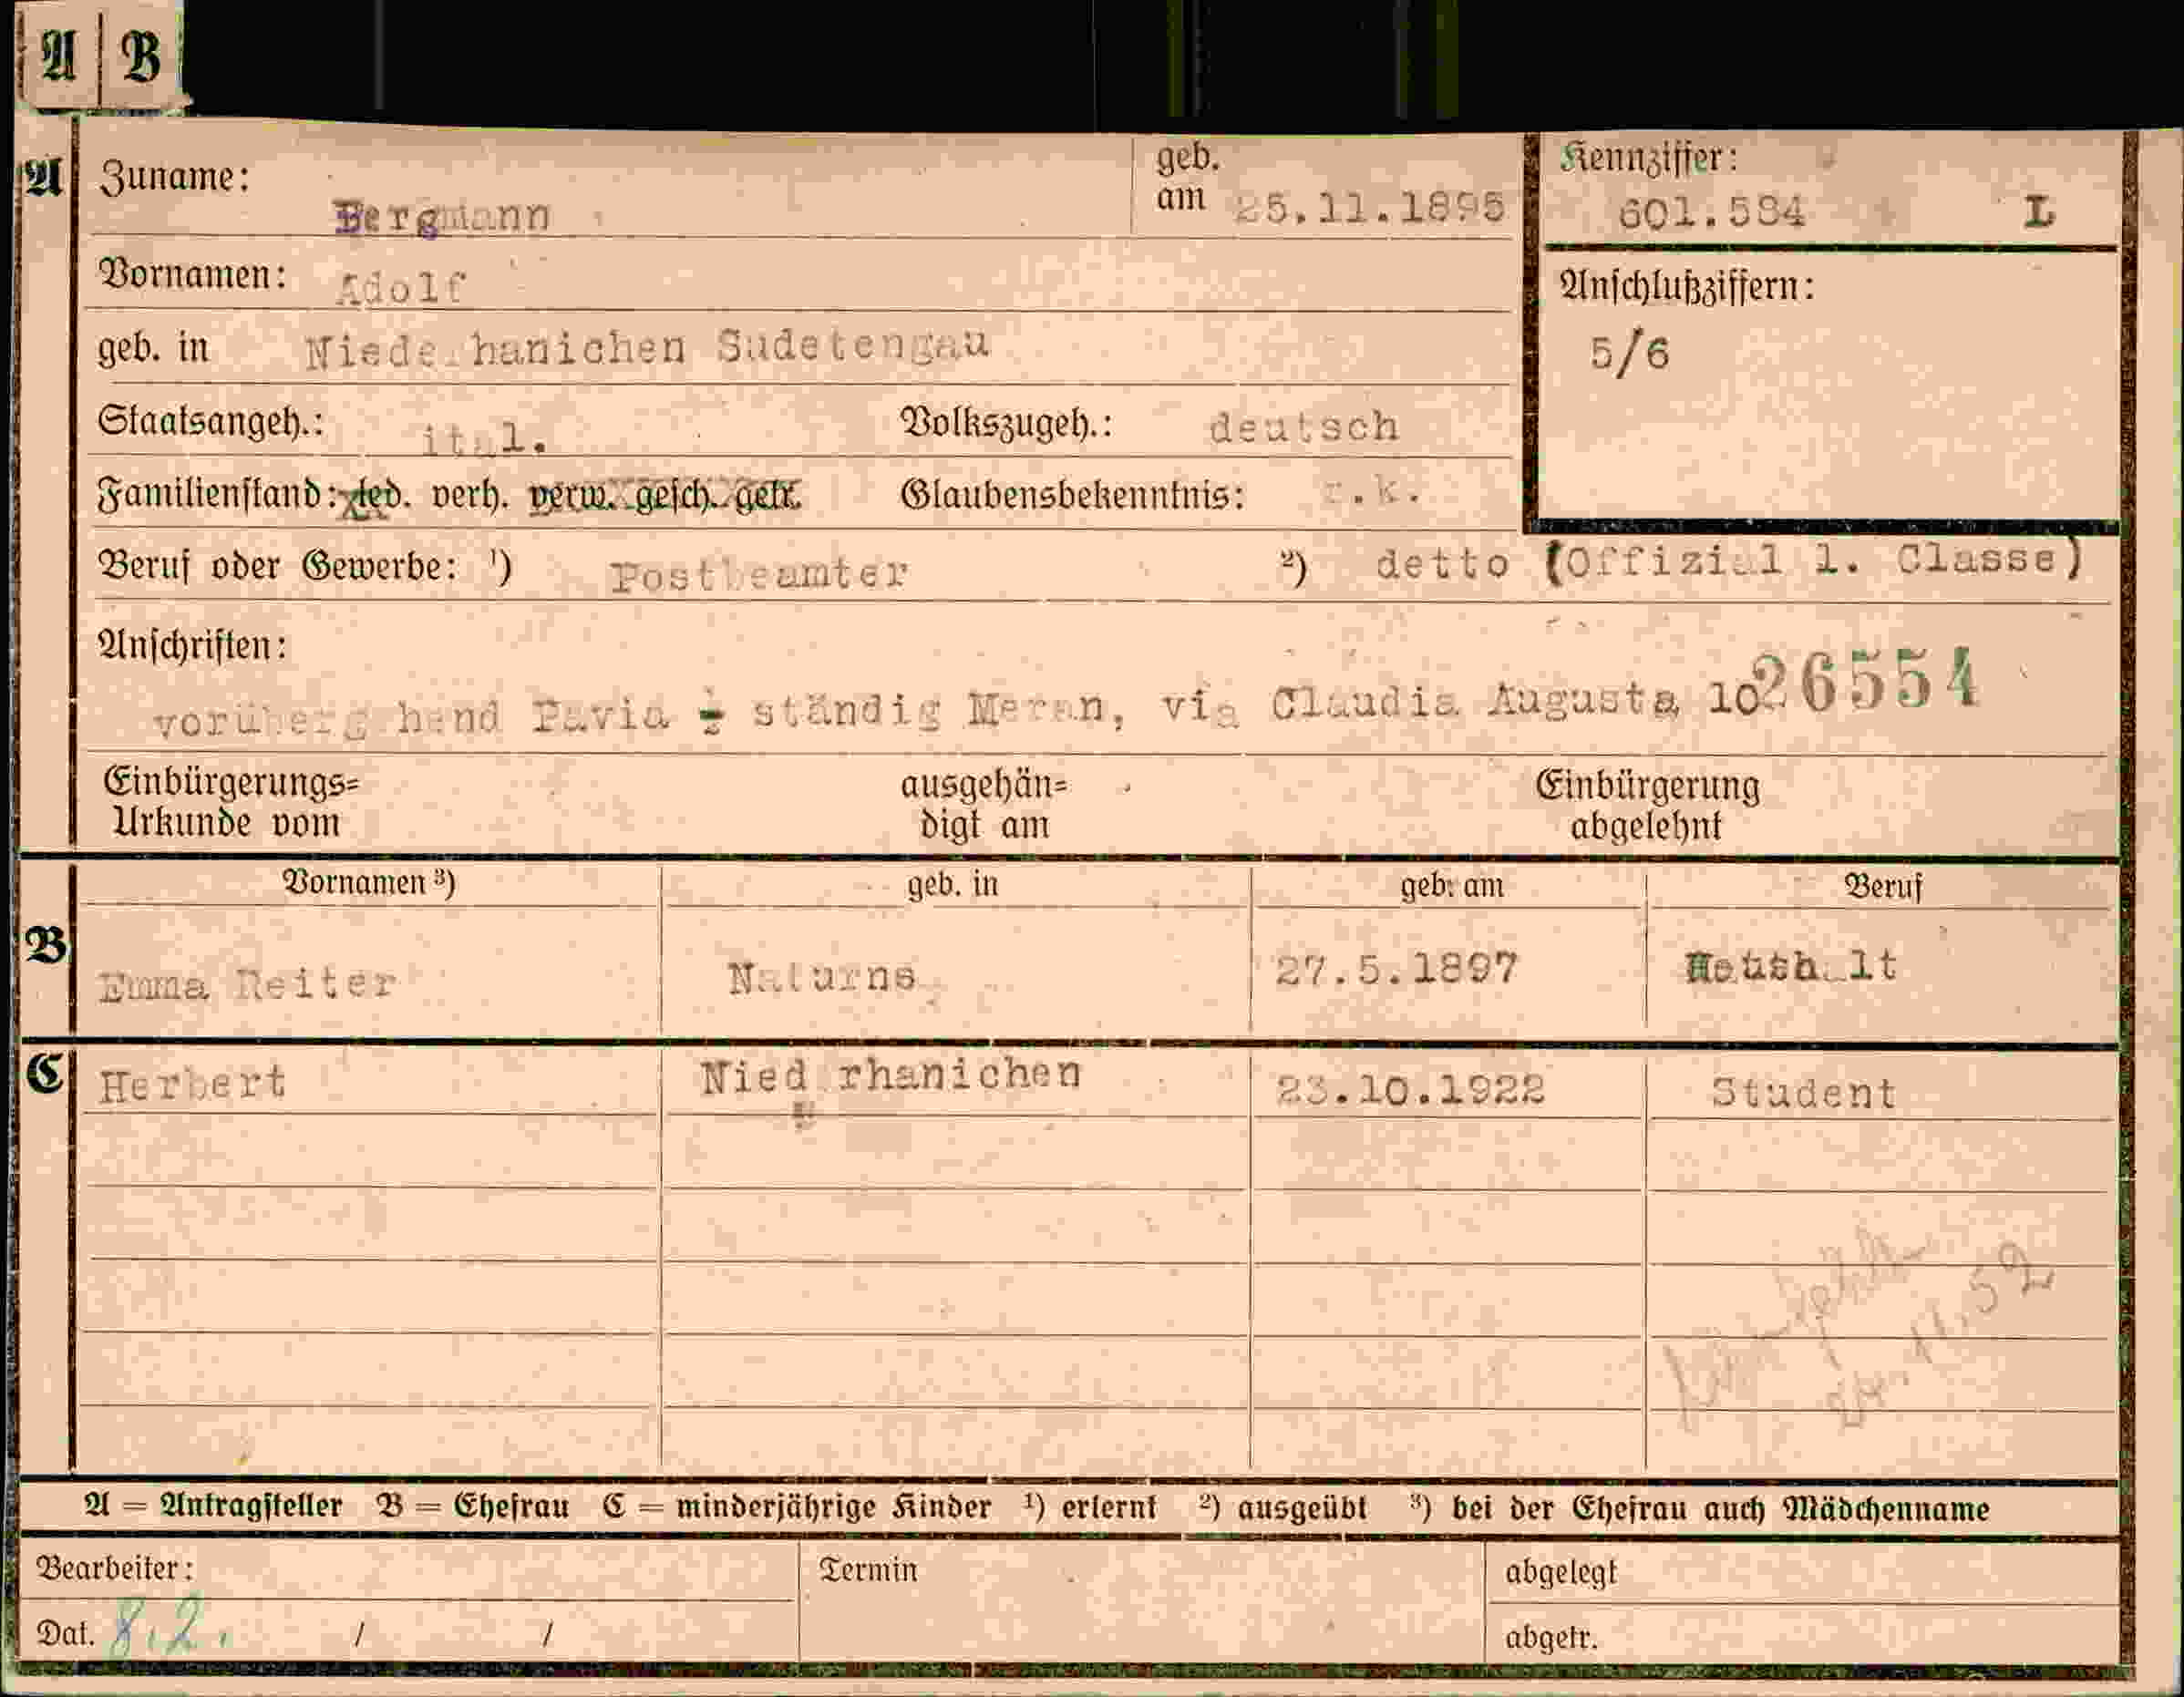 A B
A Zuname: Bergmann geb. am 25.11.1895 Kennziffer: 601.584 L
Vornamen: Adolf Anschlußziffern:
geb. in Niederhanichen Sudetengau 5/6
Staatsangeh.: ital. Volkszugeh.: deutsch
Familienstand: led. verh. verw. gesch. getr. Glaubensbekenntnis: r.k.
Beruf oder Gewerbe: ¹) Postbeamter ²) detto (Offizial 1. Classe)
Anschriften:
vorübergehend Pavia - ständig Meran, via Claudia Augusta 10 26554
Einbürgerungs= ausgehän= Einbürgerung
Urkunde vom digt am abgelehnt
Vornamen ³) geb. in geb. am Beruf
B Emma Reiter Naturns 27.5.1897 Haushalt
C Herbert Niederhanichen 23.10.1922 Student
11.52
A = Antragsteller B = Ehefrau C = minderjährige Kinder ¹) erlernt ²) ausgeübt ³) bei der Ehefrau auch Mädchenname
Bearbeiter: Termin abgelegt
Dat. 8.2. / / abgetr.